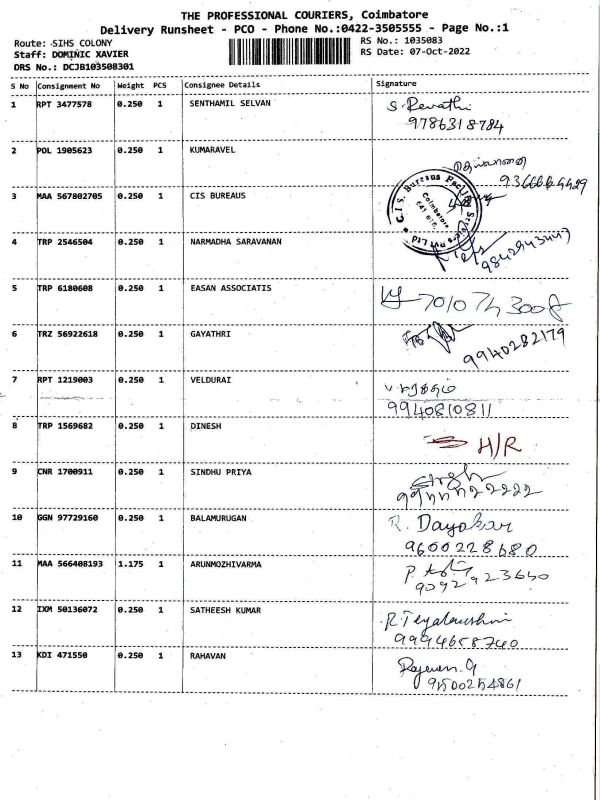 THE PROFESSIONAL COURIERS, Coimbatore
Delivery Runsheet - PCO - Phone No.:0422-3505555 - Page No.:1
Route: SIHS COLONY
RS No.: 1035083
Staff: DOMINIC XAVIER
RS Date: 07-Oct-2022
DRS No.: DCJB103508301
S No Consignment No Weight PCS Consignee Details Signature
1 RPT 3477578 0.250 1 SENTHAMIL SELVAN S. Revathi
9786318784
2 POL 1905623 0.250 1 KUMARAVEL
3 MAA 567802705 0.250 1 CIS BUREAUS
C.I.S. Bureaus Facility Services Pvt Ltd
Coimbatore
4 TRP 2546504 0.250 1 NARMADHA SARAVANAN
9842943447
5 TRP 6180608 0.250 1 EASAN ASSOCIATIS
6 TRZ 56922618 0.250 1 GAYATHRI
9940282179
7 RPT 1219003 0.250 1 VELDURAI
9940810811
8 TRP 1569682 0.250 1 DINESH H/R
9 CNR 1700911 0.250 1 SINDHU PRIYA
10 GGN 97729160 0.250 1 BALAMURUGAN R. Dayakar
9600228680
11 MAA 566408193 1.175 1 ARUNMOZHIVARMA
9092923640
12 IXM 50136072 0.250 1 SATHEESH KUMAR
9994658740
13 KDI 471550 0.250 1 RAHAVAN
9500254861